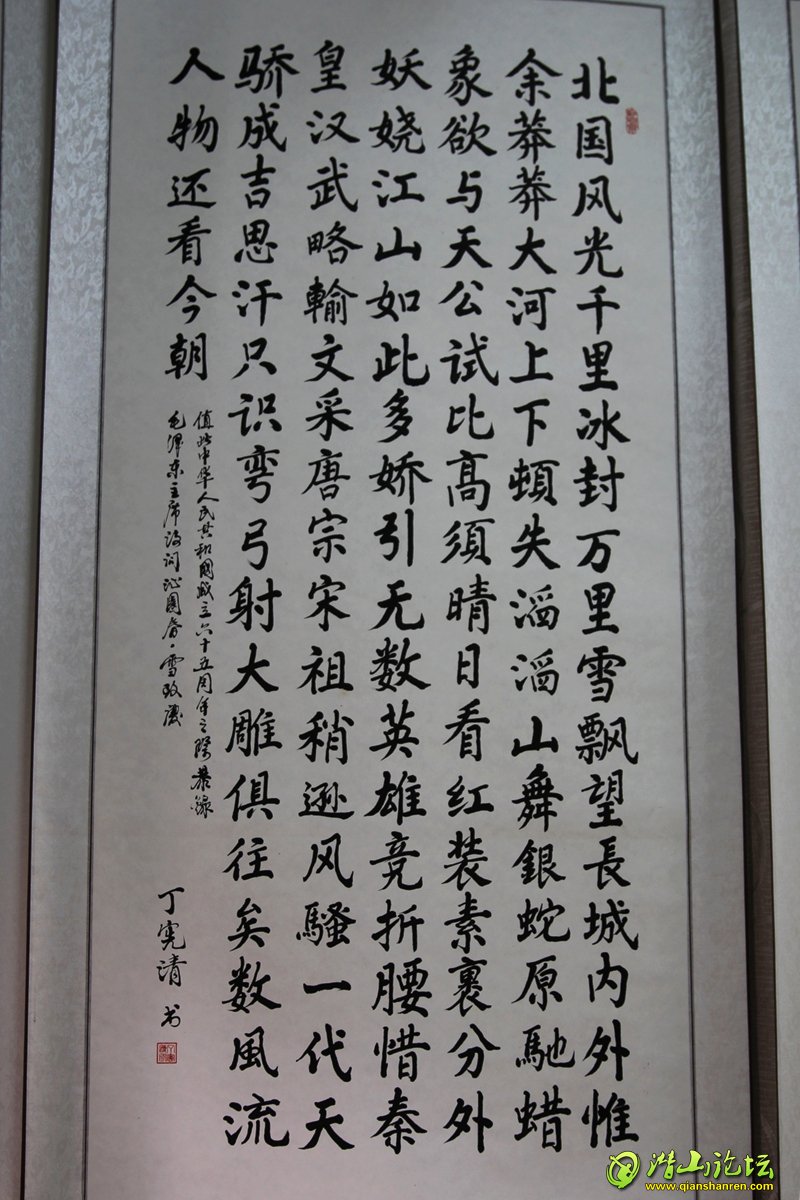 北国风光千里冰封万里雪飘望長城内外惟
余莽莽大河上下頓失滔滔山舞銀蛇原馳蜡
象欲与天公试比高须晴日看红装素裹分外
妖娆江山如此多娇引无数英雄竞折腰惜秦
皇汉武略輸文采唐宗宋祖稍逊风騷一代天
骄成吉思汗只识弯弓射大雕俱往矣数風流
人物还看今朝
值此中华人民共和國成立六十五周年之際恭錄
毛泽东主席诗词沁園春·雪
丁宪清 书
潜山论坛
www.qianshanren.com